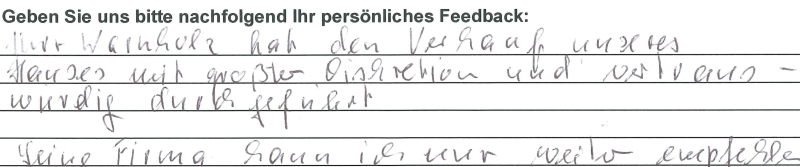 Geben Sie uns bitte nachfolgend Ihr persönliches Feedback:
Herr Warnholz hat den Verkauf unseres
Hauses mit großter Diskretion und vertrauns-
wurdig durchgeführt
Seine Firma kann ich nur weiter empfehle